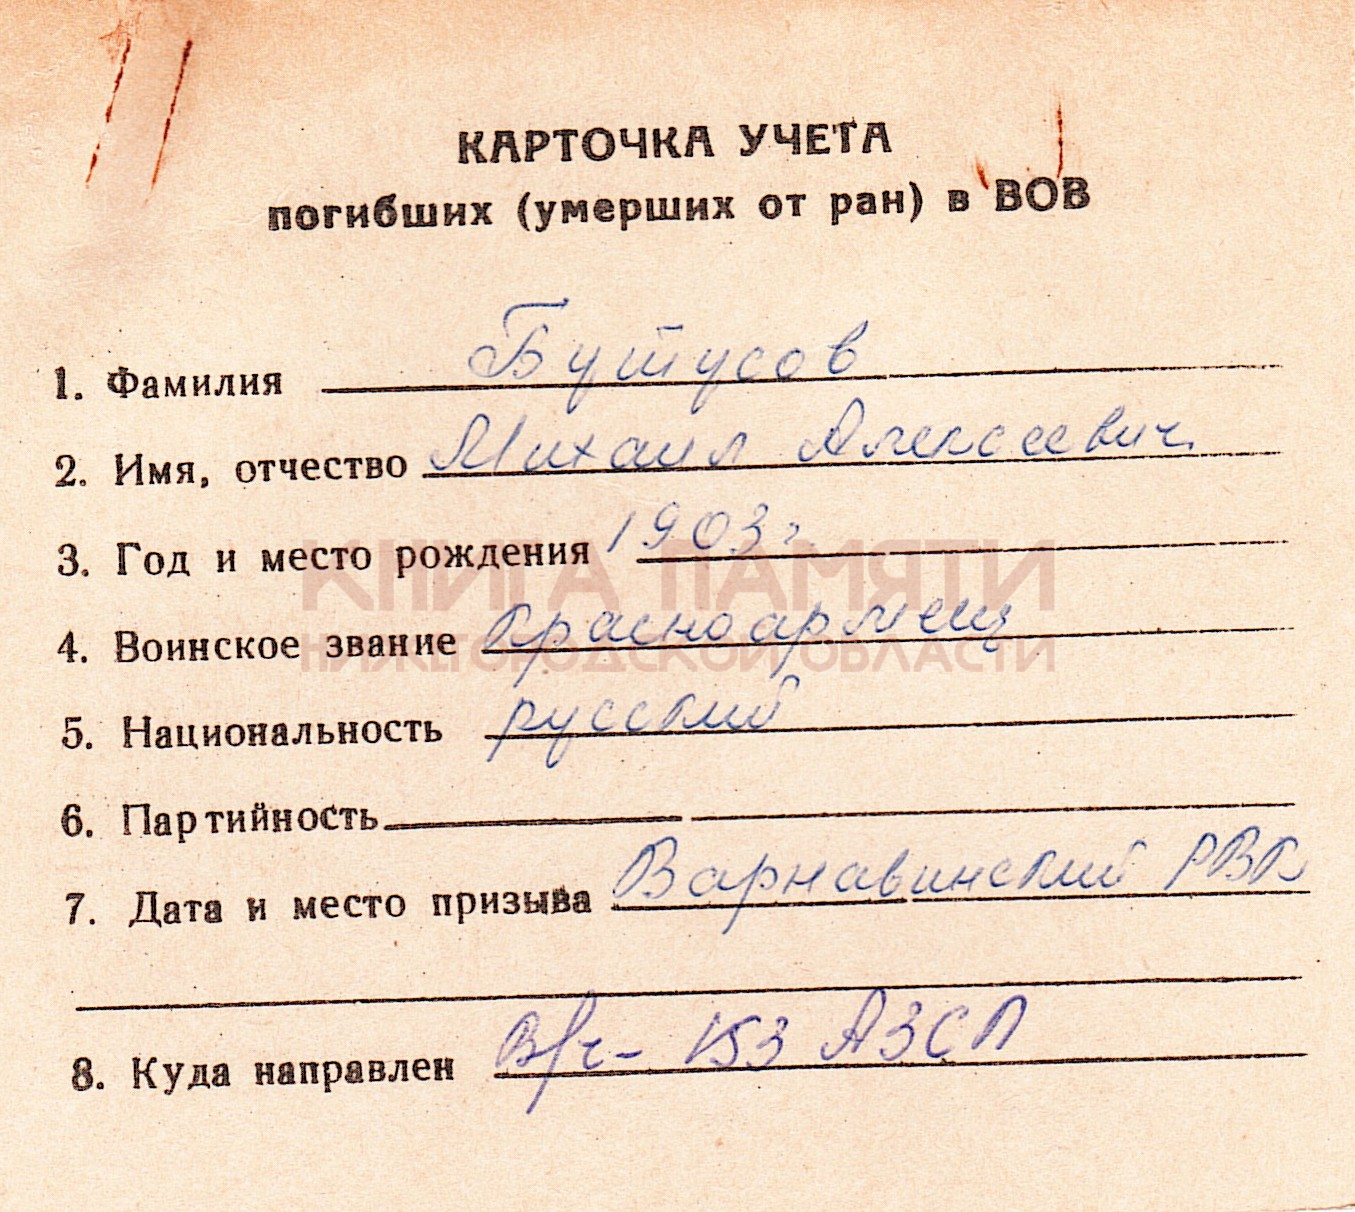 КАРТОЧКА УЧЕТА
погибших (умерших от ран) в ВОВ
1. Фамилия Бутусов
2. Имя, отчество Михаил Алексеевич
3. Год и место рождения 1903 г
КНИГА ПАМЯТИ
4. Воинское звание Красноармеец
НИЖЕГОРОДСКОЙ ОБЛАСТИ
5. Национальность русский
6. Партийность
7. Дата и место призыва Варнавинский РВК
8. Куда направлен В/ч - 153 АЗСП